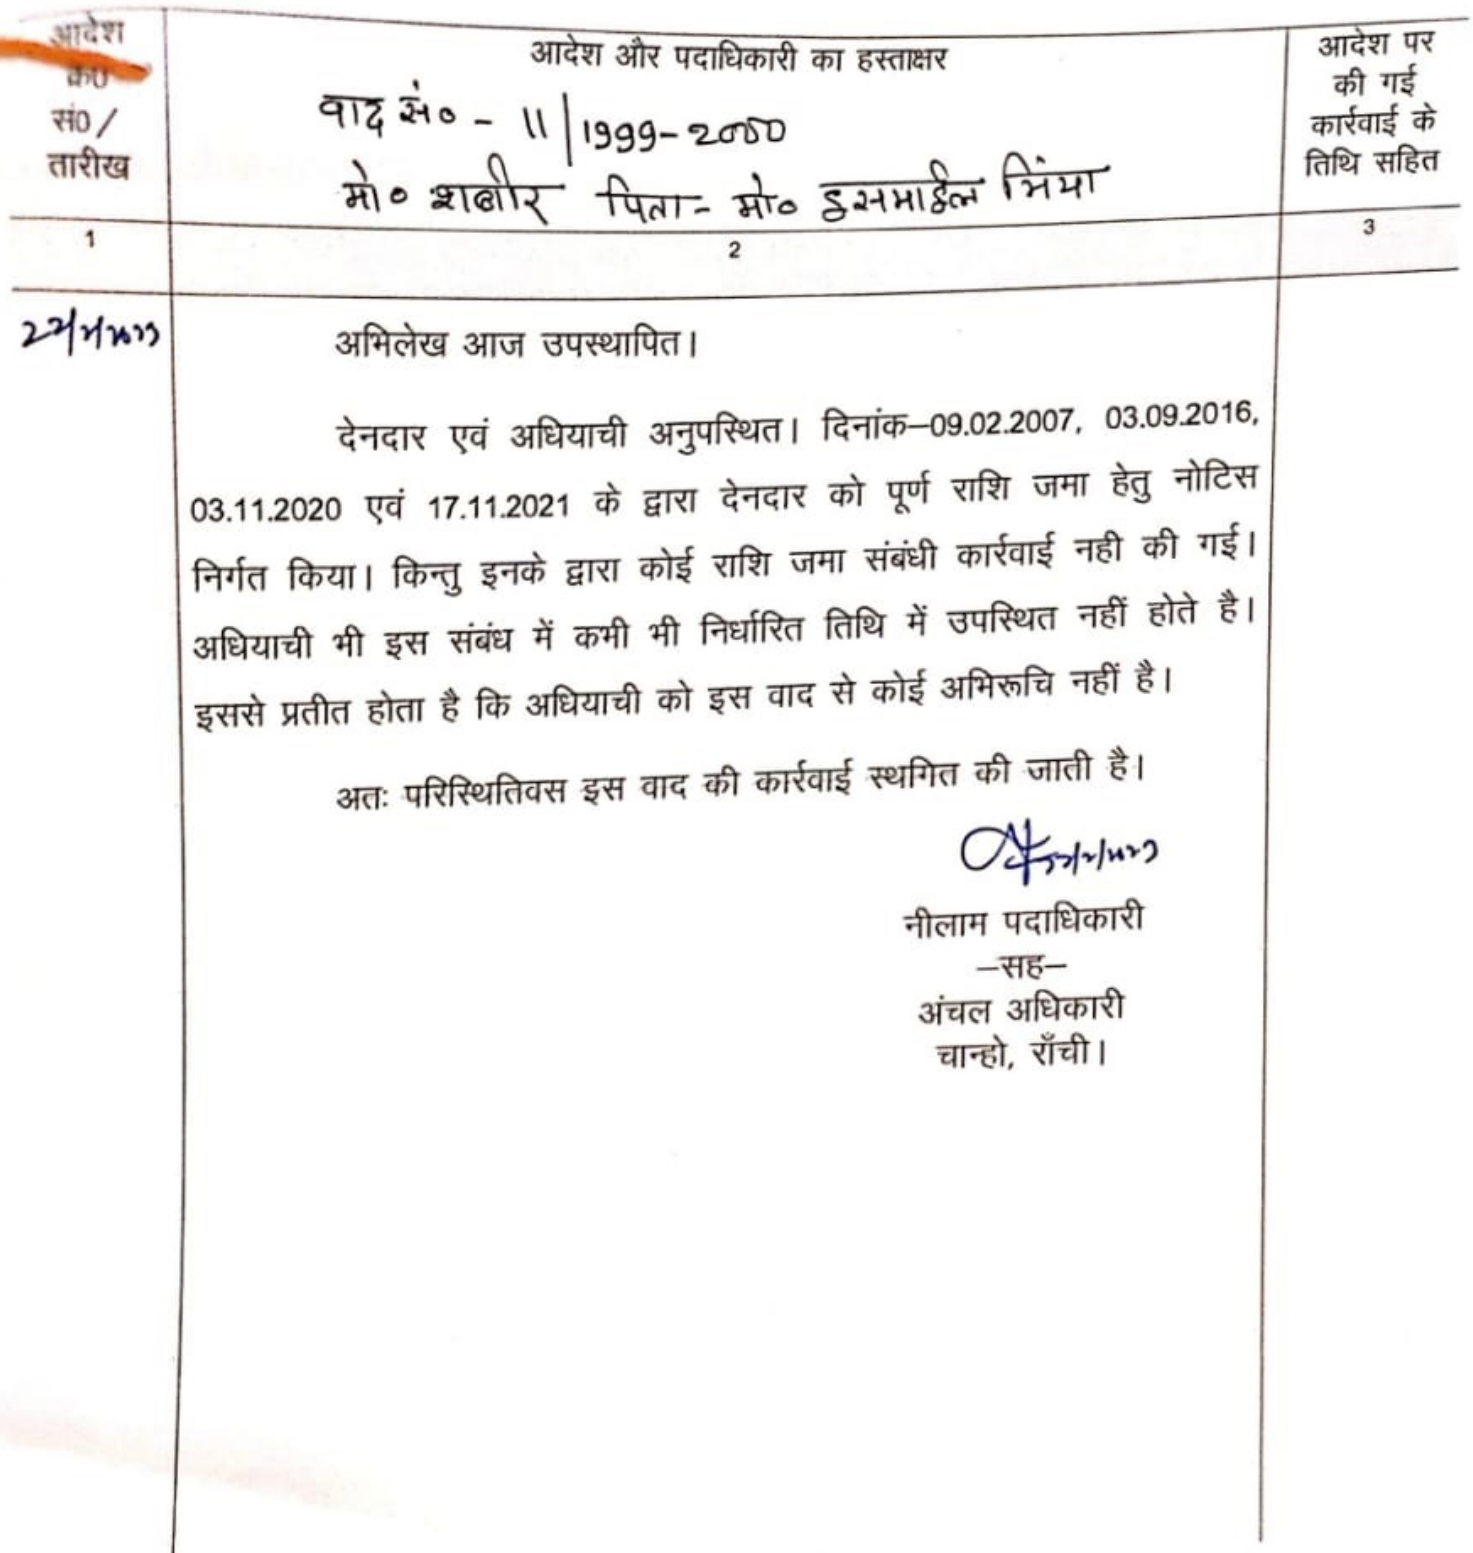 आदेश
क्र0
सं0/
तारीख
आदेश और पदाधिकारी का हस्ताक्षर
वाद सं० - 11/1999-2000
मो० शबीर पिता- मो० इसमाईल मिंया
आदेश पर
की गई
कार्रवाई के
तिथि सहित
1
2
3
अभिलेख आज उपस्थापित।
देनदार एवं अधियाची अनुपस्थित। दिनांक–09.02.2007, 03.09.2016,
03.11.2020 एवं 17.11.2021 के द्वारा देनदार को पूर्ण राशि जमा हेतु नोटिस
निर्गत किया। किन्तु इनके द्वारा कोई राशि जमा संबंधी कार्रवाई नही की गई।
अधियाची भी इस संबंध में कभी भी निर्धारित तिथि में उपस्थित नहीं होते है।
इससे प्रतीत होता है कि अधियाची को इस वाद से कोई अभिरूचि नहीं है।
अतः परिस्थितिवस इस वाद की कार्रवाई स्थगित की जाती है।
नीलाम पदाधिकारी
–सह–
अंचल अधिकारी
चान्हो, राँची।